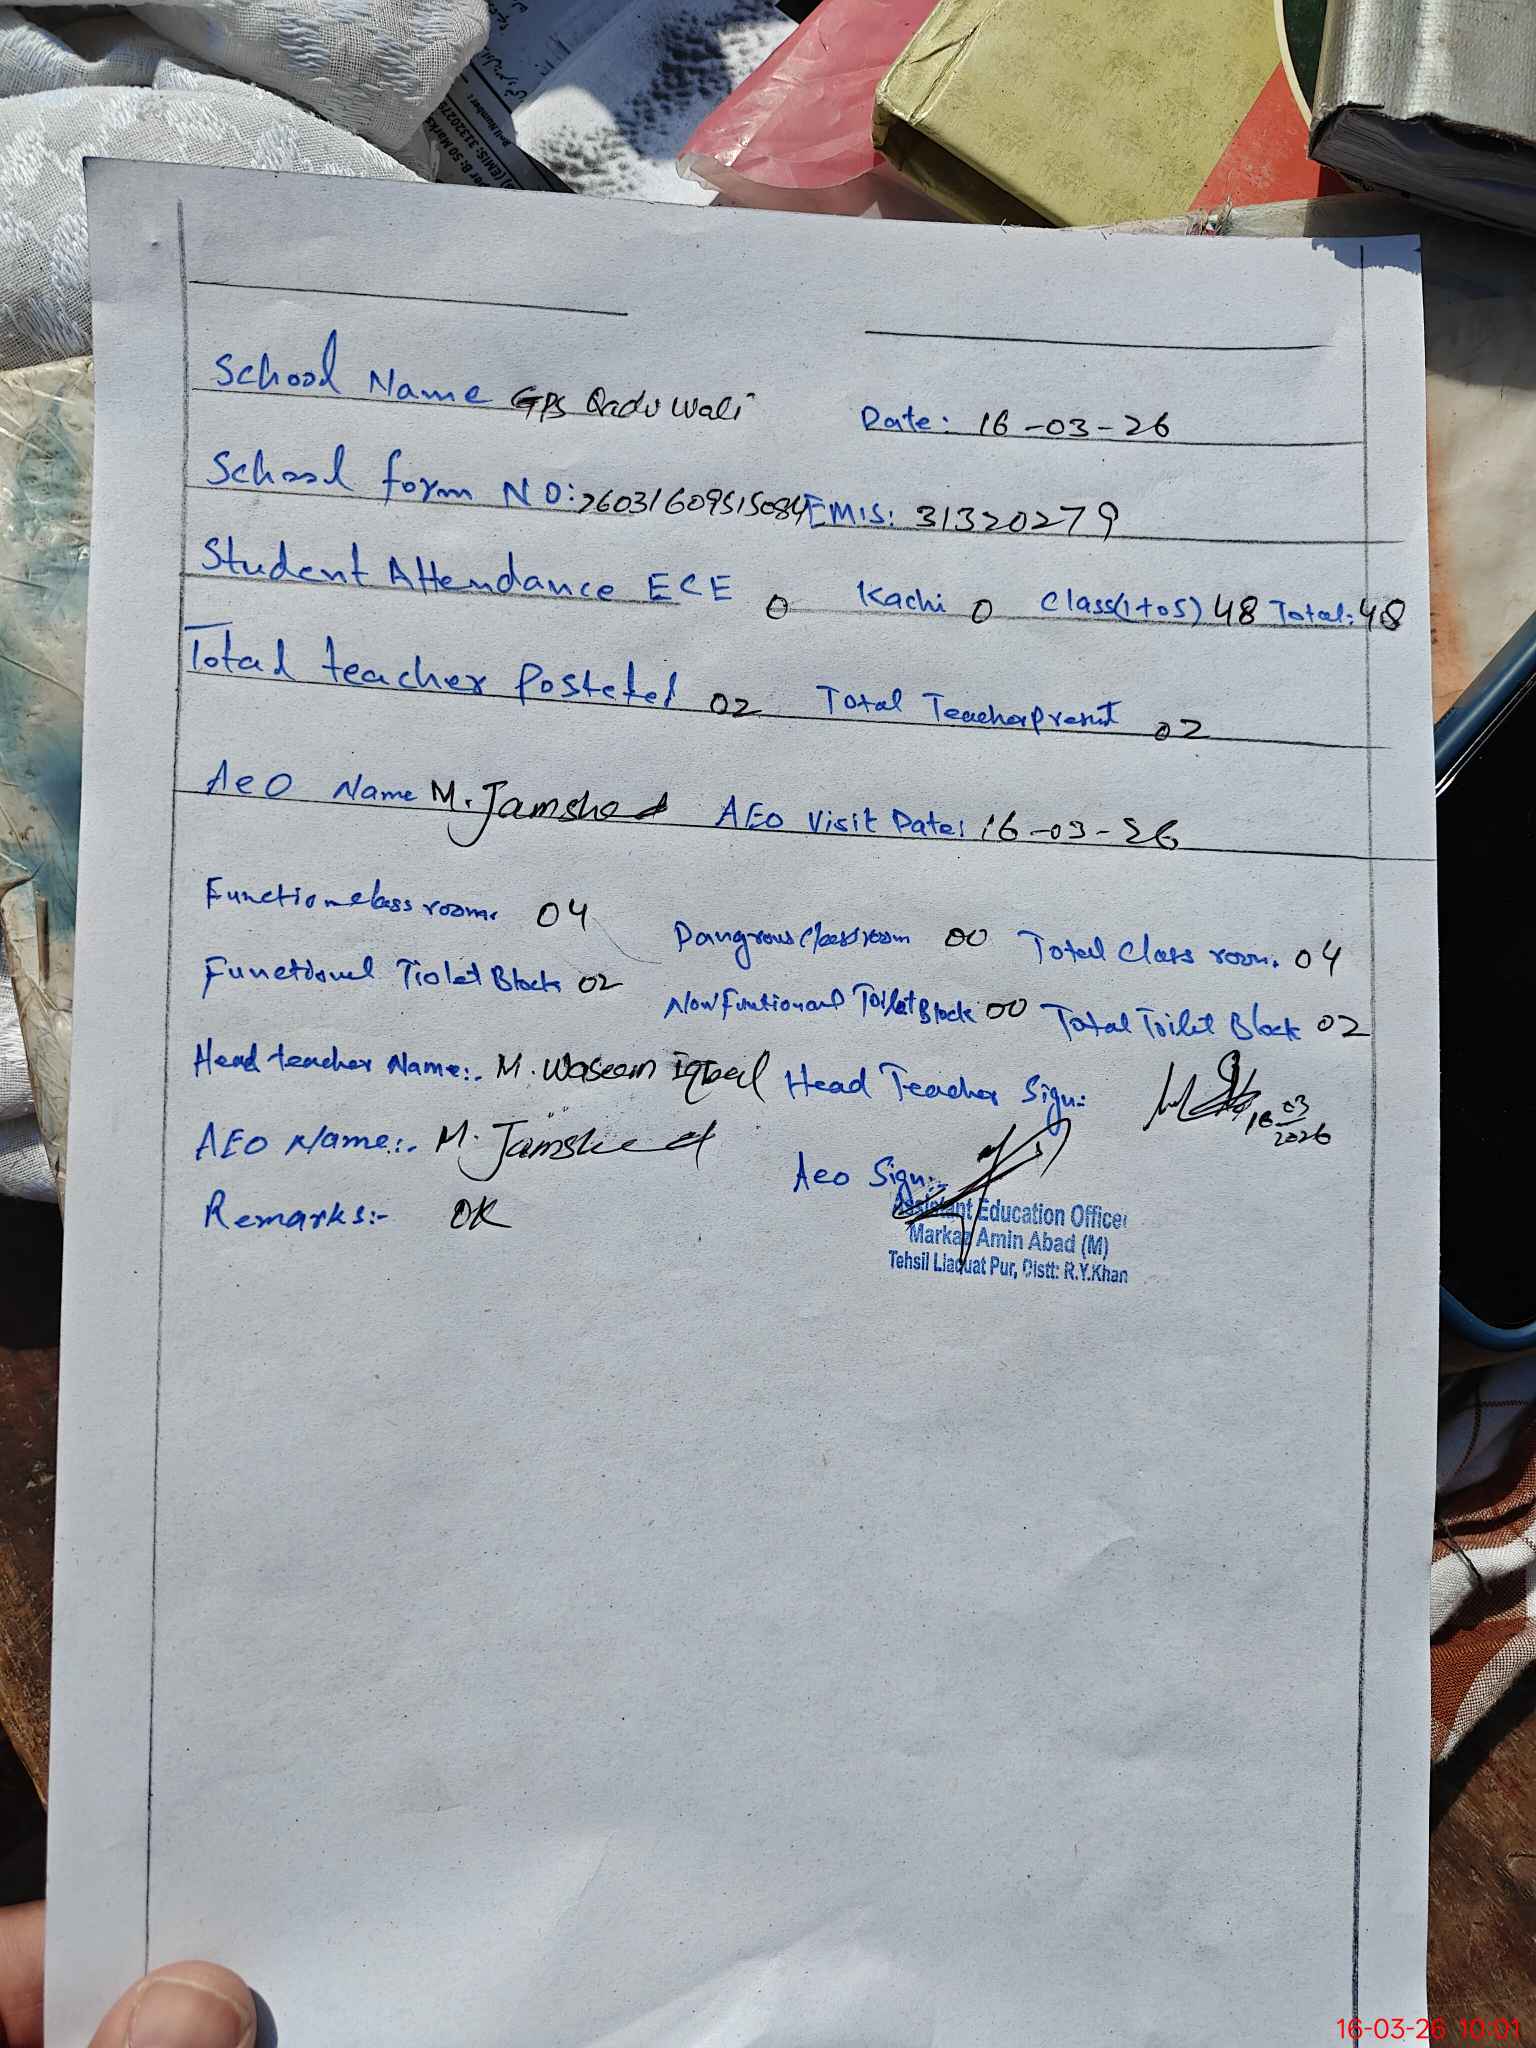 (EMIS: 3132027
per B: 50 Marks
Roll Number:
School Name GPS Qadu Wali Date: 16-03-26
School form NO: 26031609515084 EMIS: 31320279
Student Attendance ECE 0 Kachi 0 Class(1to5) 48 Total: 48
Total teacher Posteted 02 Total Teacher present 02
AeO Name M. Jamshed AEO Visit Date: 16-03-26
Function class room. 04 Dangrous Classroom 00 Total Class room. 04
Functional Tiolet Block 02 Now Funtional Toilet Block 00 Total Toilet Block 02
Head teacher Name:. M. Waseem iqbal Head Teacher Sign:
16 03 2026
AEO Name:. M. Jamsheed Aeo Sign:.
Remarks:- OK
Assistant Education Officer
Markaz Amin Abad (M)
Tehsil Liaquat Pur, Distt: R.Y.Khan
16-03-26 10:01